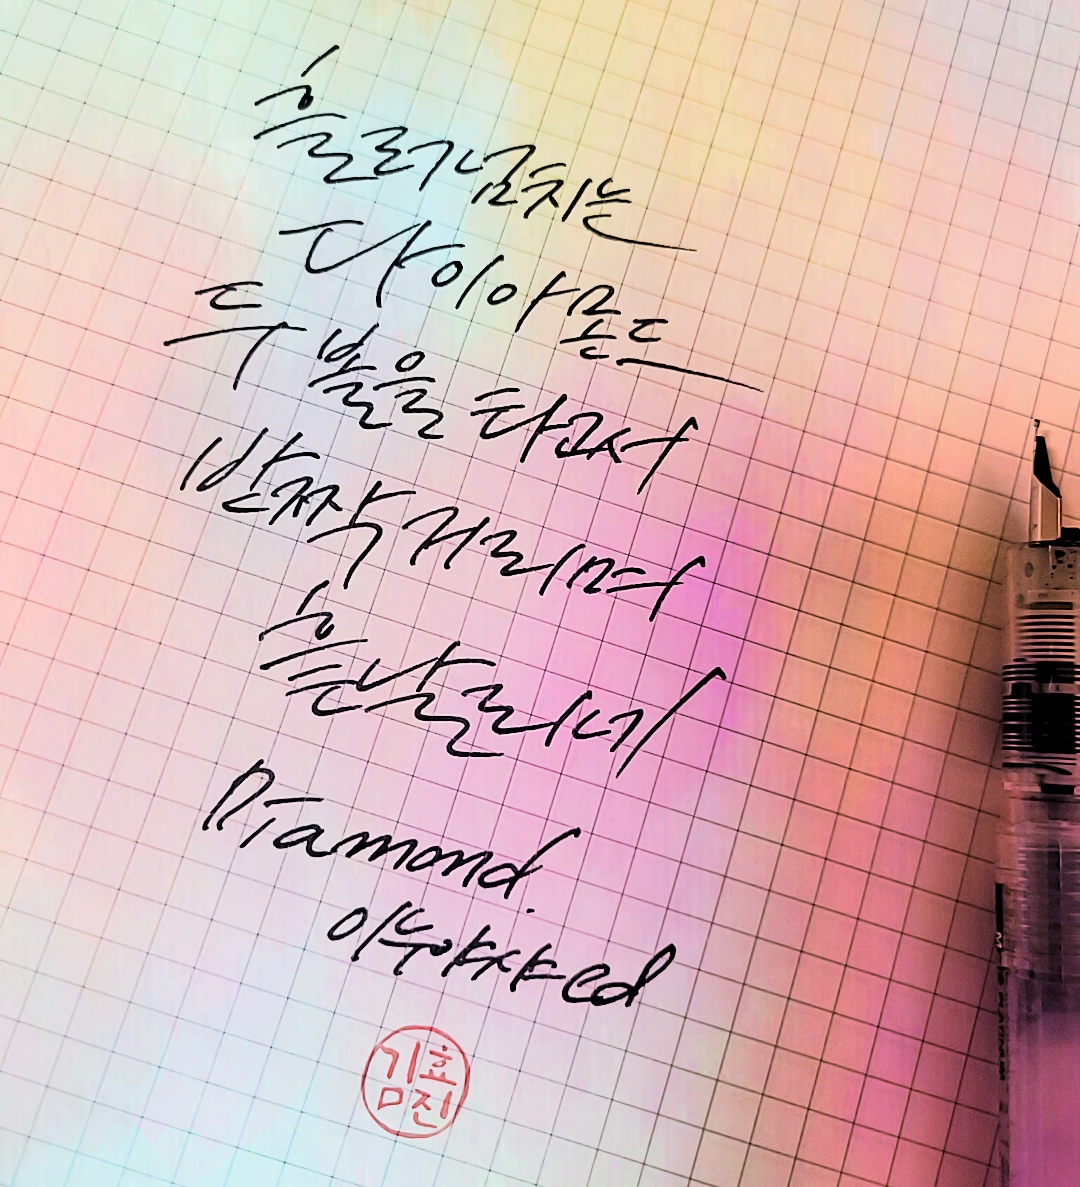 흘러넘치는
다이아몬드
두 볼을 타고서
반짝거리며
흩날리네
Diamond.
이누야샤 ed
김효진